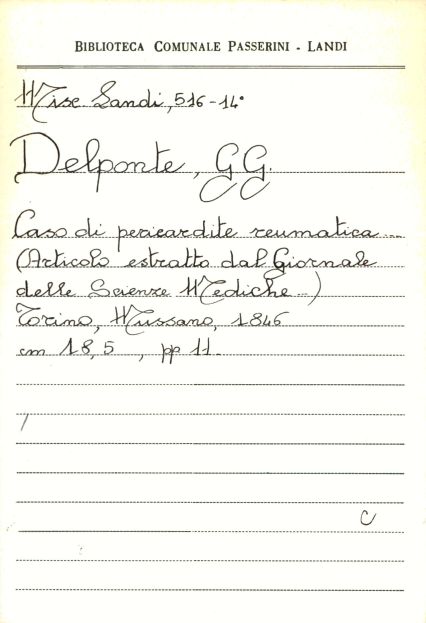 BIBLIOTECA COMUNALE PASSERINI - LANDI
Misc Landi, 516-14°
Delponte, GG.
Caso di pericardite reumatica...
(Articolo estratto dal Giornale
delle Scienze Mediche...)
Torino, Mussano, 1846
cm 18,5 , pp 11.
/
C